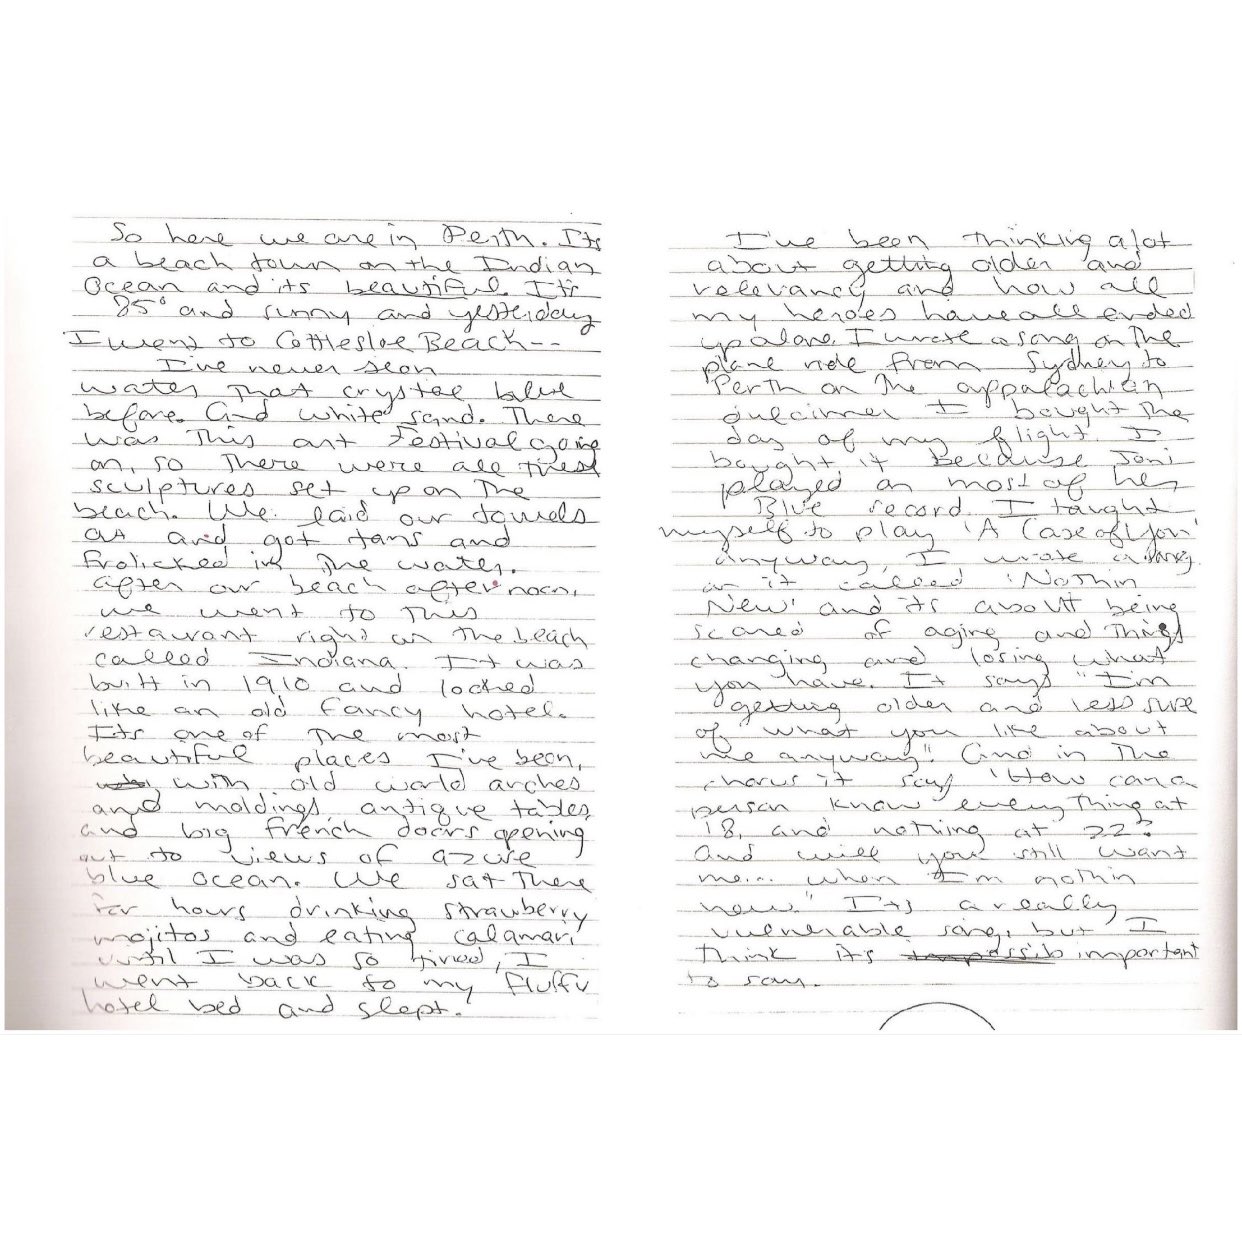 So here we are in Perth. Its
a beach town on the Indian
Ocean and its beautiful. It's
85° and sunny and yesterday
I went to Cottesloe Beach--
I've never seen
water that crystal blue
before. And white sand. There
was this art festival going
on, so there were all these
sculptures set up on the
beach. We laid our towels
out and got tans and
frolicked in the water.
After our beach afternoon,
we went to this
restaurant right on the beach
called Indiana. It was
built in 1910 and looked
like an old fancy hotel.
Its one of the most
beautiful places I've been,
with old world arches
and moldings, antique tables,
and big french doors opening
out to views of azure
blue ocean. We sat there
for hours drinking strawberry
mojitos and eating calamari
until I was so tired, I
went back to my fluffy
hotel bed and slept.
I've been thinking alot
about getting older and
relevancy and how all
my heroes have all ended
up alone. I wrote a song on the
plane ride from Sydney to
Perth on the appalachian
dulcimer I bought the
day of my flight. I
bought it because Joni
played on most of her
Blue record. I taught
myself to play 'A Case of You'
anyway, I wrote a song
on it called 'Nothin
New' and its about being
scared of aging and things
changing and losing what
you have. It says "I'm
getting older and less sure
of what you like about
me anyway." And in the
chorus it says 'How can a
person know everything at
18, and nothing at 22?
And will you still want
me... when I'm nothin
new." Its a really
vulnerable song, but I
think its important
to say.